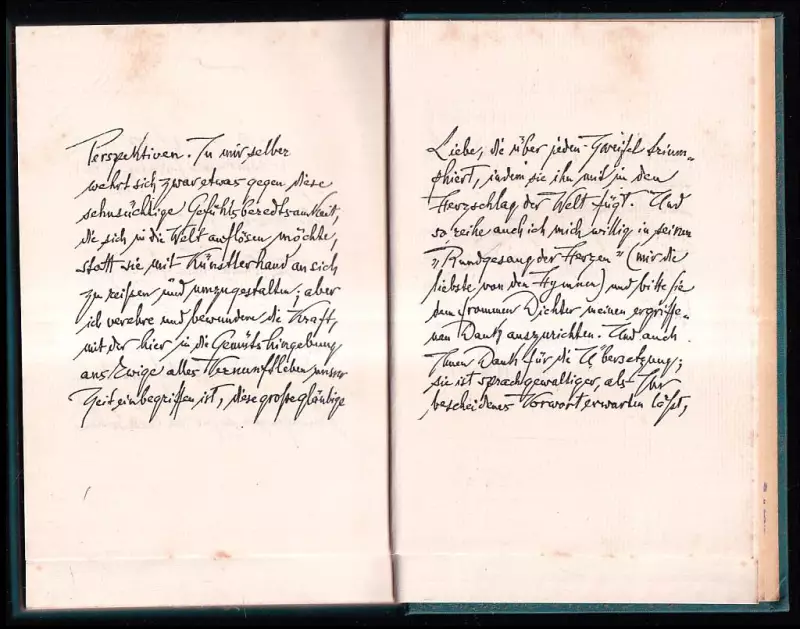 Perspektiven. In mir selber
wehrt sich zwar etwas gegen diese
sehnsüchtige Gefühlsberedtsamkeit,
die sich in die Welt auflösen möchte,
statt sie mit Künstlerhand an sich
zu reißen und umzugestalten; aber
ich verehre und bewundere die Kraft,
mit der hier in die Gemütshingebung
ans Ewige alles Vernunftleben unsrer
Zeit einbegriffen ist, diese große gläubige
Liebe, die über jeden Zweifel trium-
phiert, indem sie ihn mit in den
Herzschlag der Welt fügt. Und
so reihe auch ich mich willig in seinen
"Rundgesang der Herzen" (mir die
liebste von den Hymnen) und bitte Sie
dem frommen Dichter meinen ergriffe-
nen Dank auszurichten. Und auch
Ihnen Dank für die Übersetzung;
sie ist sprachgewaltiger, als Ihr
bescheidenes Vorwort erwarten läßt,